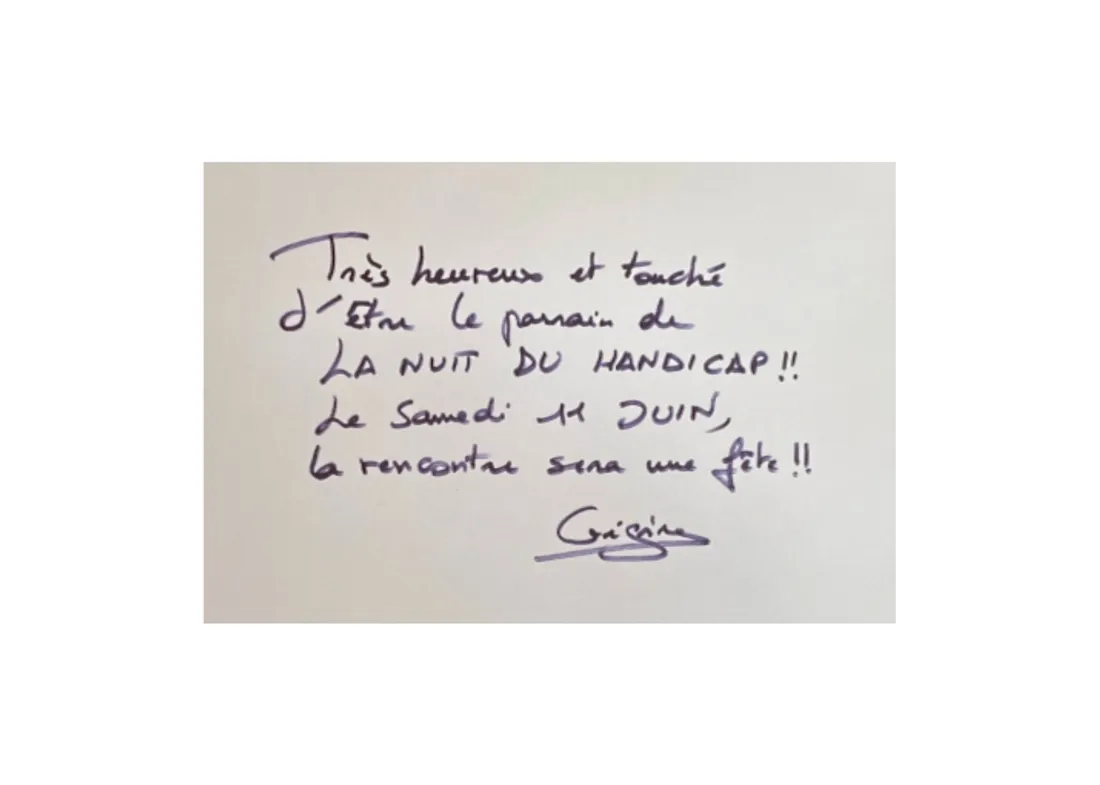 Très heureux et touché
d'Etre le parrain de
LA NUIT DU HANDICAP !!
Le Samedi 11 JUIN,
la rencontre sera une fête !!
Grégoire